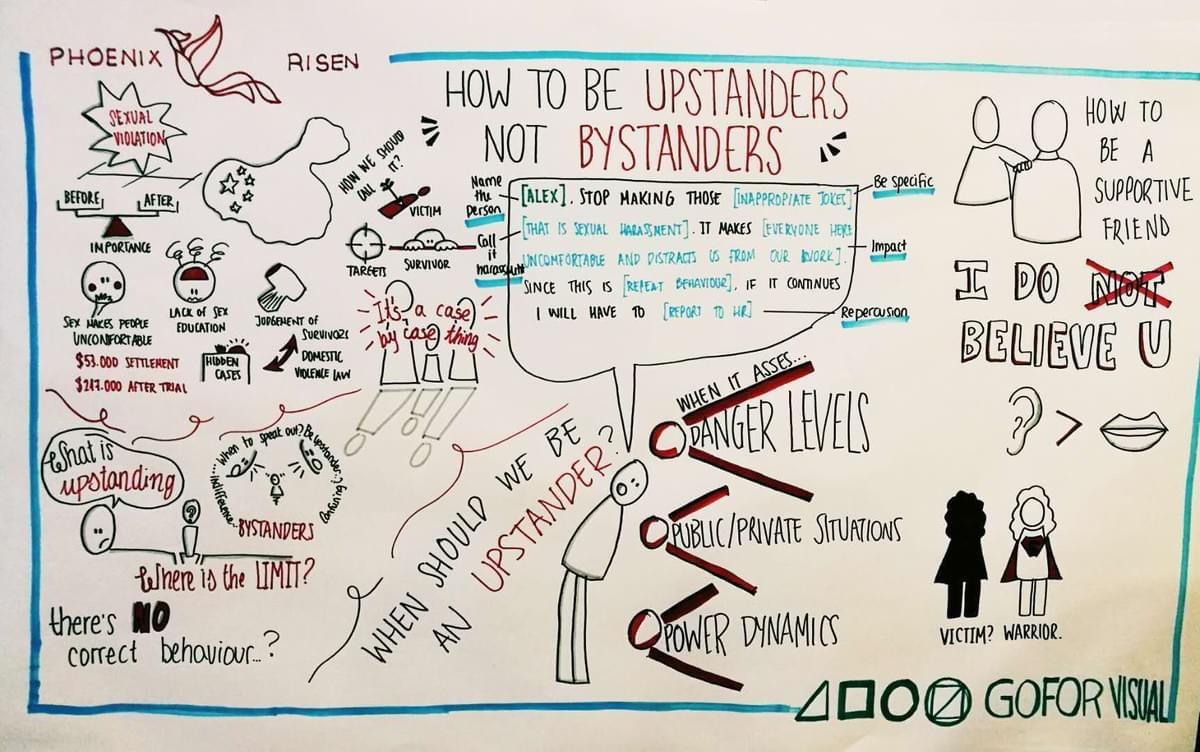 PHOENIX RISEN
HOW TO BE UPSTANDERS
NOT BYSTANDERS
SEXUAL
VIOLATION
BEFORE
AFTER
IMPORTANCE
SEX MAKES PEOPLE
UNCONFORTABLE
LACK OF SEX
EDUCATION
JUDGEMENT OF
SURVIVORS
DOMESTIC
VIOLENCE LAW
HIDDEN
CASES
$53.000 SETTLEMENT
$217.000 AFTER TRIAL
HOW WE SHOULD
CALL IT?
VICTIM
TARGETS
SURVIVOR
It's a case
by case thing
Name
the
person
Call
it
harassment
[ALEX]. STOP MAKING THOSE [INAPPROPIATE JOKES]
[THAT IS SEXUAL HARASSMENT]. IT MAKES [EVERYONE HERE
UNCOMFORTABLE AND DISTRACTS US FROM OUR WORK].
SINCE THIS IS [REPEAT BEHAVIOUR], IF IT CONTINUES
I WILL HAVE TO [REPORT TO HR]
Be specific
Impact
Repercusion
What is
upstanding
When to speak out? Be upstander..?
Indifference...
Confusing
BYSTANDERS
?
Where is the LIMIT?
there's NO
correct behaviour...?
WHEN SHOULD WE BE
AN UPSTANDER?
WHEN IT ASSES...
DANGER LEVELS
PUBLIC/PRIVATE SITUATIONS
POWER DYNAMICS
HOW TO
BE A
SUPPORTIVE
FRIEND
I DO NOT
BELIEVE U
>
VICTIM? WARRIOR.
GOFOR VISUAL